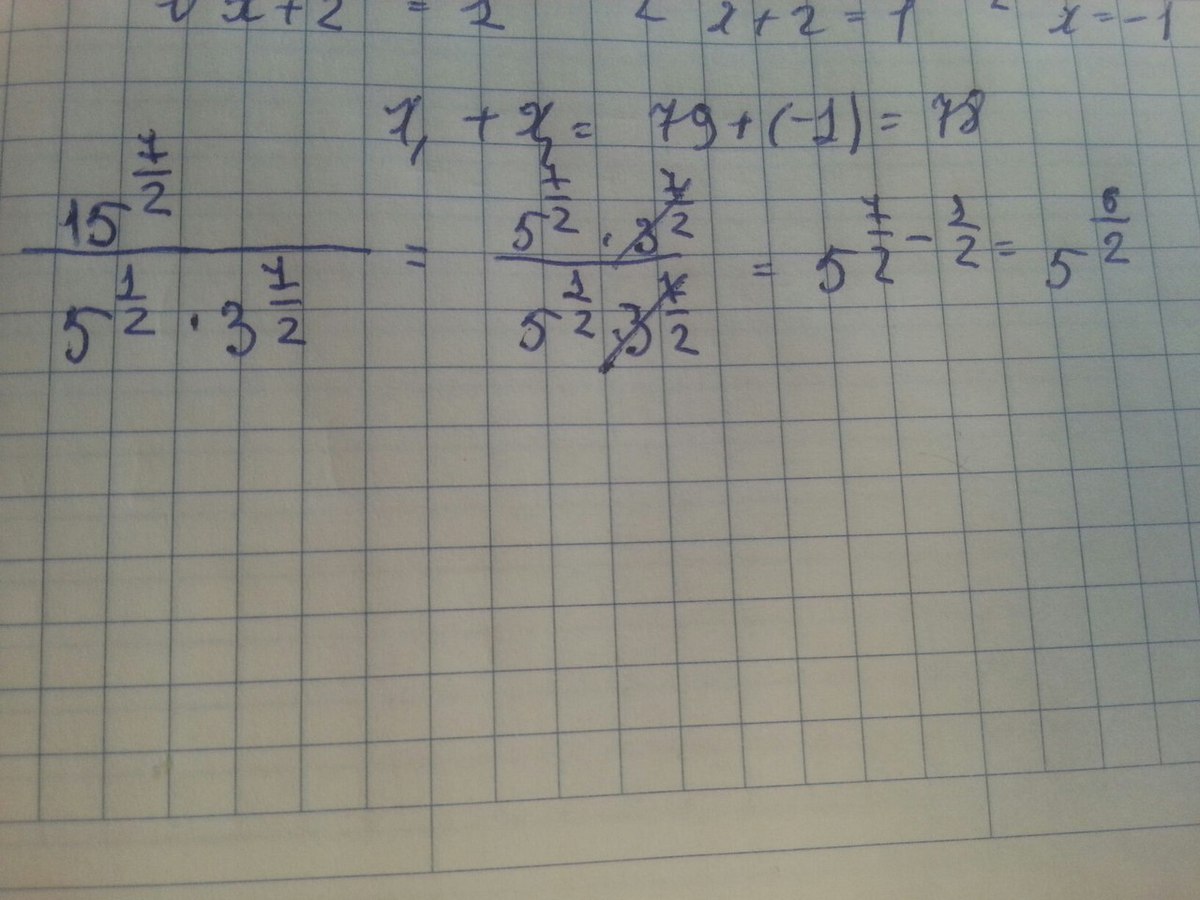 √x+2 = 1 x+2=1 x=-1
x₁ + x₂ = 79+(-1)=78
15^(7/2) / (5^(1/2) · 3^(7/2)) = (5^(7/2) · 3^(7/2)) / (5^(1/2) 3^(7/2)) = 5^(7/2 - 1/2) = 5^(6/2)